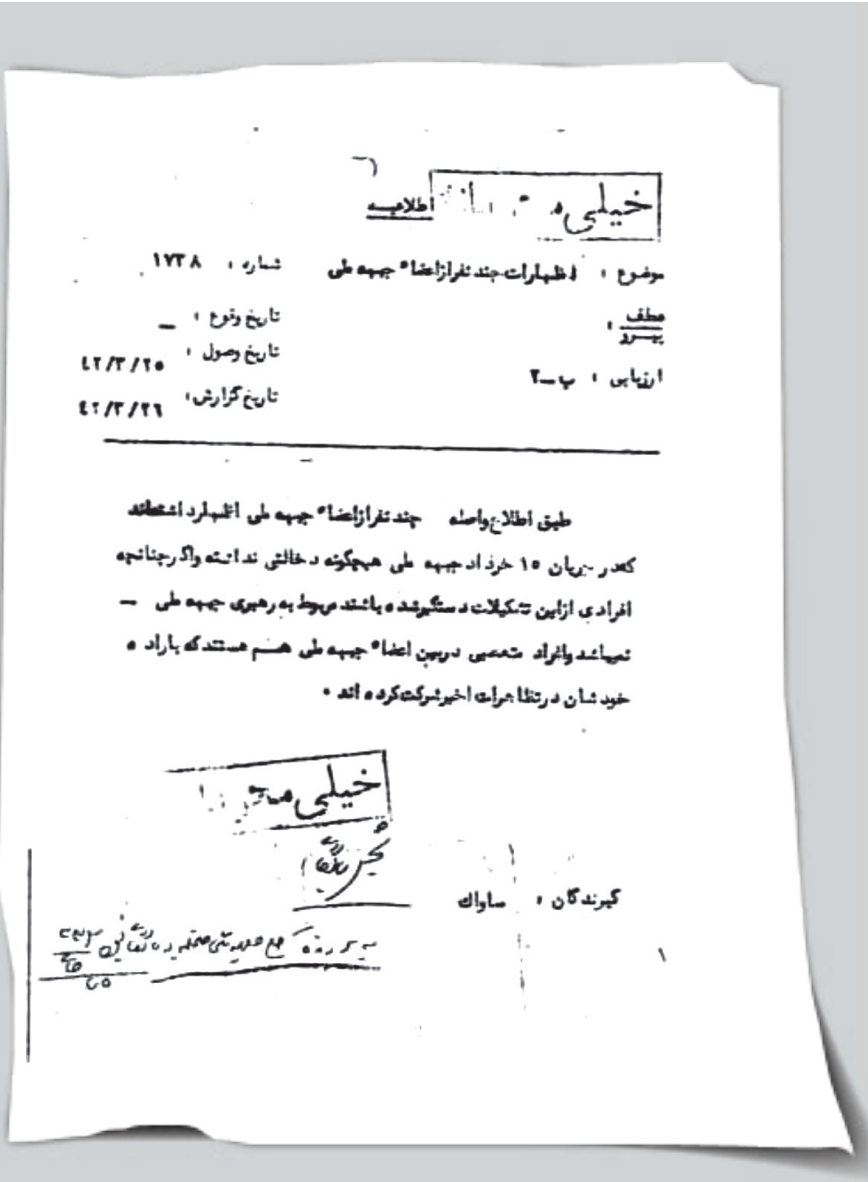 خیلی محرمانه
اطلاعیه
موضوع : اظهارات چند نفر از اعضاء جبهه ملی
شماره : ١٧٣٨
عطف
پیرو :
تاریخ وقوع : ـ
تاریخ وصول : ٤٢/٣/٢٥
ارزیابی : ب ـ ٢
تاریخ گزارش : ٤٢/٣/٢٦
طبق اطلاع واصله چند نفر از اعضاء جبهه ملی اظهار داشته‌اند
که در جریان ١٥ خرداد جبهه ملی هیچگونه دخالتی نداشته و اگر چنانچه
افرادی از این تشکیلات دستگیر شده باشند مربوط به رهبری جبهه ملی ـ
نمیباشد و افراد متعصبی در بین اعضاء جبهه ملی هستند که باراده
خودشان در تظاهرات اخیر شرکت کرده اند .
خیلی محرمانه
گیرندگان : ساواك
١